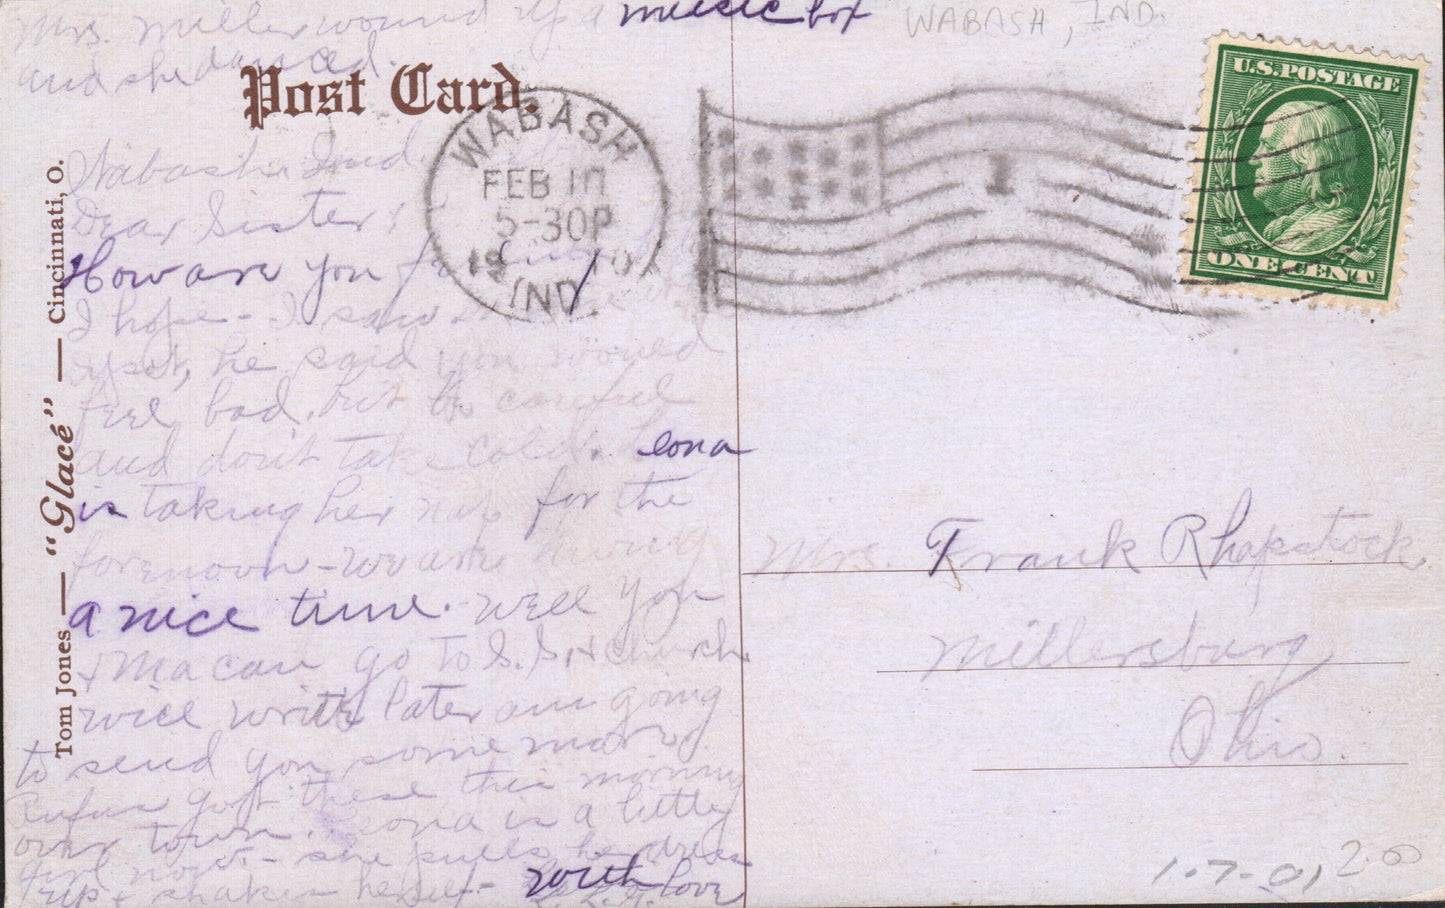 Mrs. Miller wound up a music box
and she danced.
WABASH, IND.
Post Card.
U.S. POSTAGE
ONE CENT
WABASH
FEB 10
5-30P
19 10
IND.
1
Tom Jones — "Glacé" — Cincinnati, O.
Wabash Ind.
Dear Sister:
How are you
I hope - I saw
he said you would
feel bad, but be careful
and don't take cold. Leona
is taking her nap for the
forenoon - we are having
a nice time. Well you
& Ma can go to S. S. & church
will write later am going
to send you some more
Rufus got these this morning
over town. Leona is a little
girl now - she pulls her dress
up & shakes herself - with love
Mrs. Frank Rhapstock
Millersburg
Ohio.
1-7-01
2.00